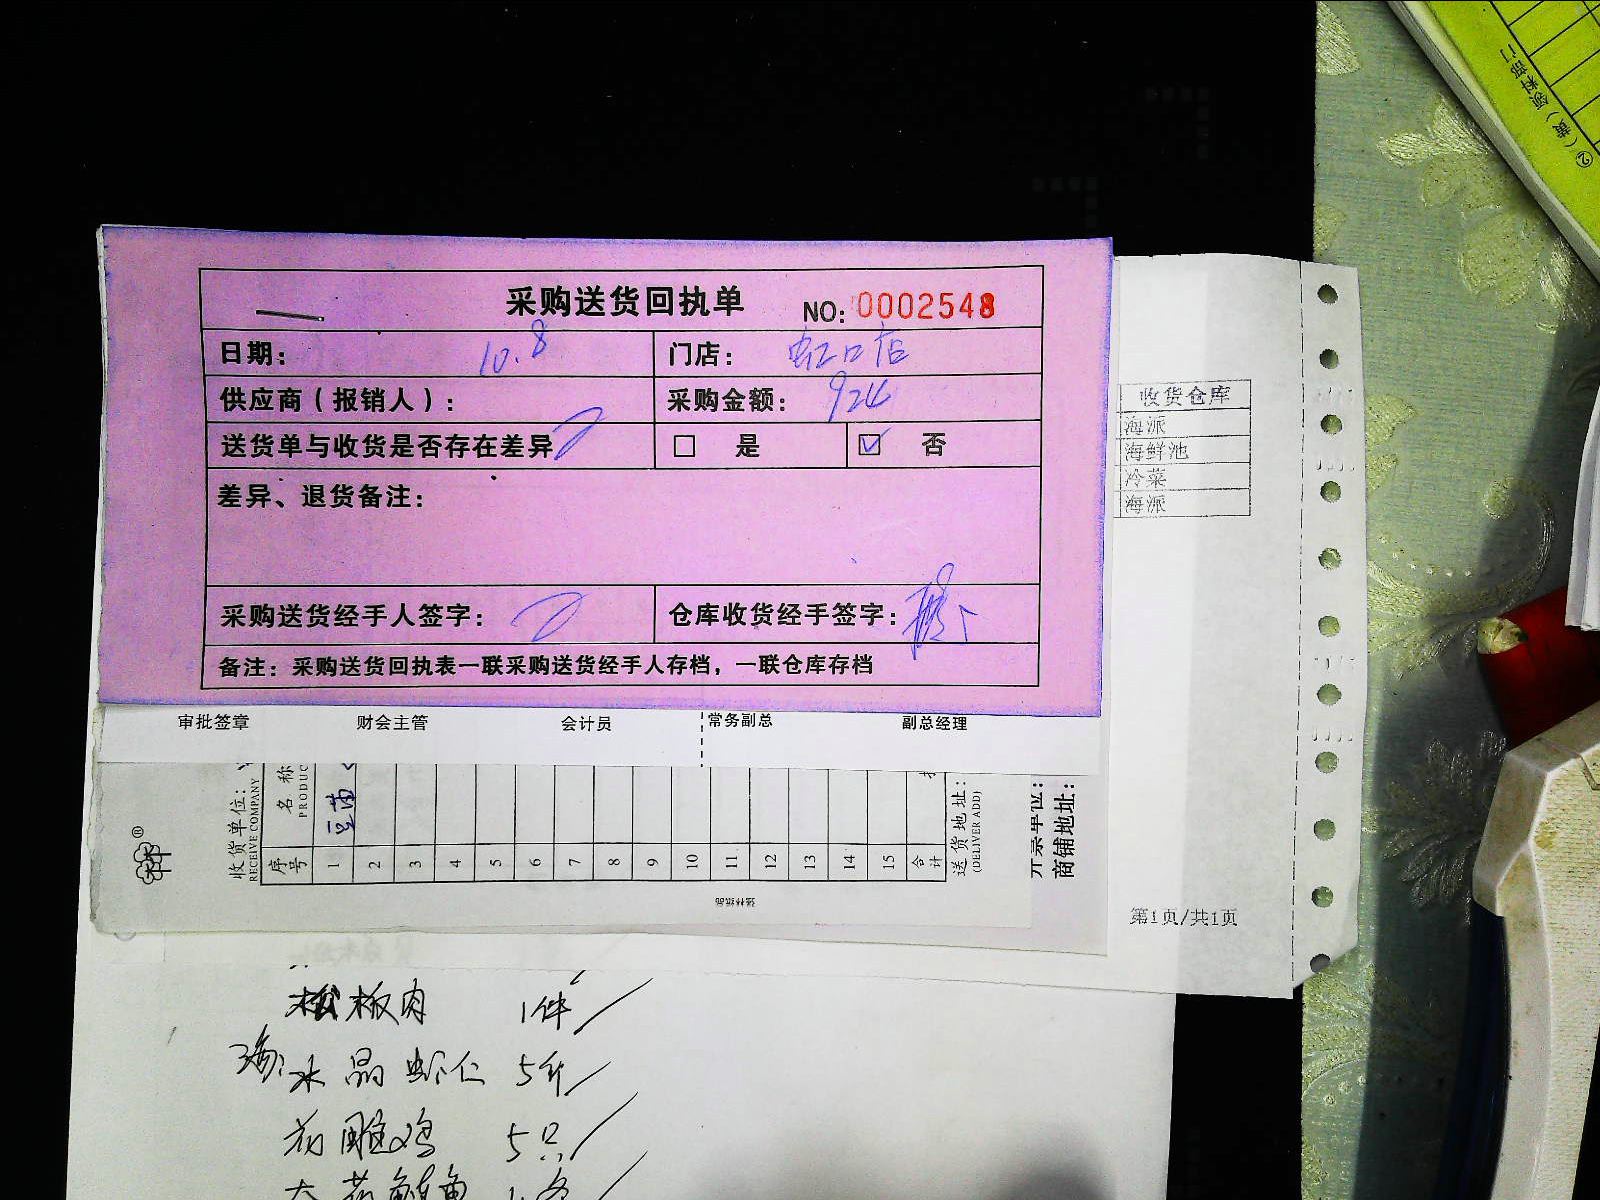 采购送货回执单 NO: 0002548
日期: 10.8 门店: 虹口店
供应商(报销人): 采购金额: 924
送货单与收货是否存在差异 □ 是 ☑ 否
差异、退货备注:
采购送货经手人签字: 仓库收货经手签字:
备注: 采购送货回执表一联采购送货经手人存档,一联仓库存档
收货仓库
海派
海鲜池
冷菜
海派
审批签章 财会主管 会计员 常务副总 副总经理
收货单位:
RECEIVE COMPANY
序号 名称
PRODUC
1 豆苗
2
3
4
5
6
7
8
9
10
11
12
13
14
15
合计
送货地址:
(DELIVER ADD)
商铺地址:
第1页/共1页
松板肉 1件
海: 水晶虾仁 5斤
花雕鸡 5只
②(黄)领料部门